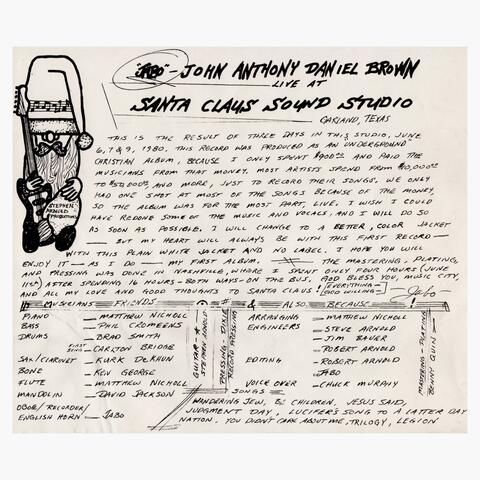 "JABO" - JOHN ANTHONY DANIEL BROWN
LIVE AT
SANTA CLAUS SOUND STUDIO
GARLAND, TEXAS
THIS IS THE RESULT OF THREE DAYS IN THIS STUDIO, JUNE
6, 7 & 9, 1980. THIS RECORD WAS PRODUCED AS AN UNDERGROUND"
CHRISTIAN ALBUM, BECAUSE I ONLY SPENT $900.00 AND PAID THE
MUSICIANS FROM THAT MONEY. MOST ARTIST SPEND FROM $10,000.00
TO $50,000.00, AND MORE, JUST TO RECORD THEIR SONGS. WE ONLY
HAD ONE SHOT AT MOST OF THE SONGS BECAUSE OF THE MONEY,
SO THE ALBUM WAS FOR THE MOST PART, LIVE. I WISH I COULD
HAVE REDONE SOME OF THE MUSIC AND VOCALS, AND I WILL DO SO
AS SOON AS POSSIBLE. I WILL CHANGE TO A BETTER, COLOR JACKET
— BUT MY HEART WILL ALWAYS BE WITH THIS FIRST RECORD —
WITH THIS PLAIN WHITE JACKET AND NO LABEL. I HOPE YOU WILL
ENJOY IT — AS I DO — MY FIRST ALBUM. THE MASTERING, PLATING,
AND PRESSING WAS DONE IN NASHVILLE, WHERE I SPENT ONLY FOUR HOURS (JUNE
11th) AFTER SPENDING 16 HOURS - BOTH WAYS - ON THE BUS. GOD BLESS YOU, MUSIC CITY,
AND ALL MY LOVE AND GOOD THOUGHTS TO SANTA CLAUS! EVERYTHING - GOD WILLING - Jabo
STEPHEN ARNOLD PRODUCTIONS
MUSICIANS — FRIENDS & ALSO BECAUSE!
PIANO — MATTHEW NICHOLL
BASS — PHIL CROMEENS
DRUMS — BRAD SMITH
FIRST
CARLTON BRIDGE
SAX/CLARINET — KURK DEKHUN
BONE — KEN GEORGE
FLUTE — MATTHEW NICHOLL
MANDOLIN — DAVID JACKSON
OBOE/RECORDER/
ENGLISH HORN — JABO
GUITAR - STEPHEN ARNOLD
PRESSING - DIXIE RECORD PRESSING
ARRANGING — MATTHEW NICHOLL
ENGINEERS — STEVE ARNOLD
— JIM BAUER
ROBERT ARNOLD
EDITING — ROBERT ARNOLD
— JABO
VOICE OVER — CHUCK MURPHY
MASTERING - PLATING
BENNY QUIN
SONGS
WANDERING JEW, BE CHILDREN, JESUS SAID,
JUDGMENT DAY, LUCIFER'S SONG TO A LATTER DAY
NATION. YOU DIDN'T CARE ABOUT ME, TRILOGY, LEGION